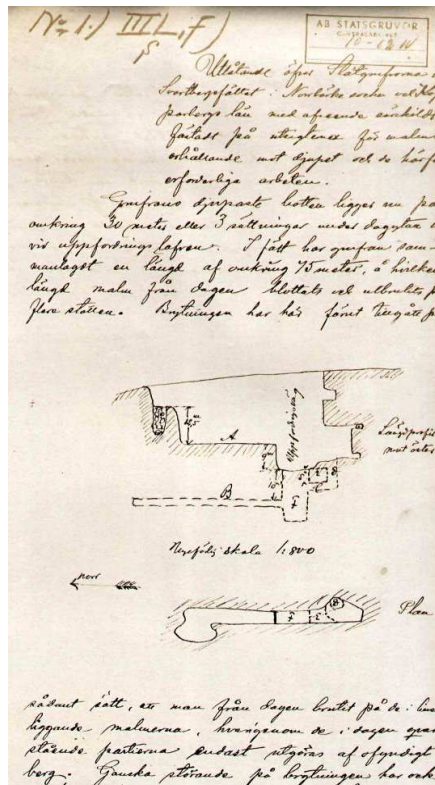 No 1.) III L, f)
AB STATSGRUVOR
CENTRALARKIVET
Utlåtande öfver Slätgrufvorna
Svartbergsfältet i Norrbärke socken
parbergs län med afseende särskildt
fästadt på utsigtena för malm
erhållande mot djupet och de härför
erforderliga arbeten.
Grufvans djupaste botten ligger nu på
omkring 30 meter eller 3 sättningar under dagytan
vid uppfordringslafven. I fält har grufvan sam-
manlagdt en längd af omkring 75 meter, å hvilken
längd malm från dagen blottats och utbrutits på
flere ställen. Brytningen har här förut tillgått på
Uppfordring
A
B
Längdprofil
mot öster
Ungefärlig skala 1:800
norr
Plan
sådant sätt, att man från dagen brutit på de i
liggande malmerna, hvarigenom de i dagen qvar
stående partierna endast utgöras af ofyndigt
berg. Ganska störande på brytningen har